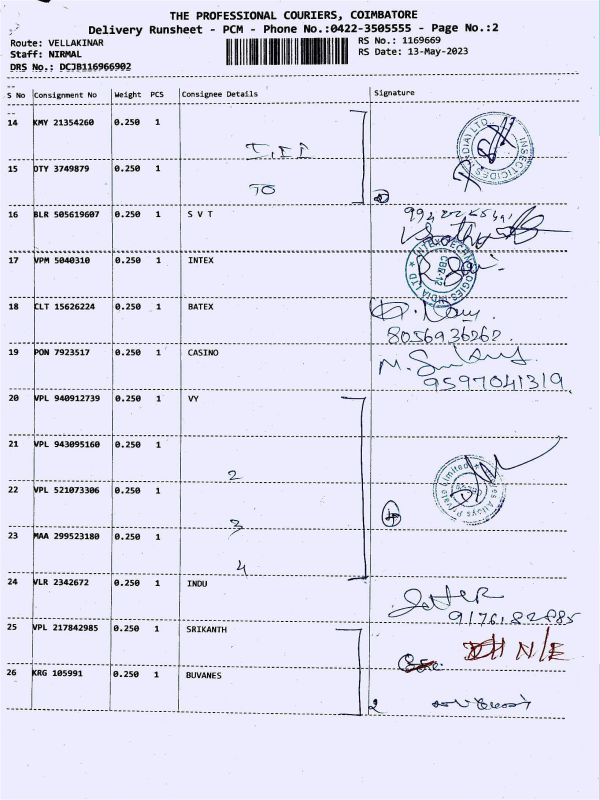 THE PROFESSIONAL COURIERS, COIMBATORE
Delivery Runsheet - PCM - Phone No.:0422-3505555 - Page No.:2
Route: VELLAKINAR RS No.: 1169669
Staff: NIRMAL RS Date: 13-May-2023
DRS No.: DCJB116966902
S No Consignment No Weight PCS Consignee Details Signature
14 KMY 21354260 0.250 1
INSECTICIDES
15 DTY 3749879 0.250 1
TO
16 BLR 505619607 0.250 1 S V T
17 VPM 5040310 0.250 1 INTEX
CBR-12
18 CLT 15626224 0.250 1 BATEX
8056936262
19 PON 7923517 0.250 1 CASINO
9597041319
20 VPL 940912739 0.250 1 VY
21 VPL 943095160 0.250 1
2
22 VPL 521073306 0.250 1
Alloys Private Limited
4
3
23 MAA 299523180 0.250 1
4
24 VLR 2342672 0.250 1 INDU
25 VPL 217842985 0.250 1 SRIKANTH
N/E
26 KRG 105991 0.250 1 BUVANES
2